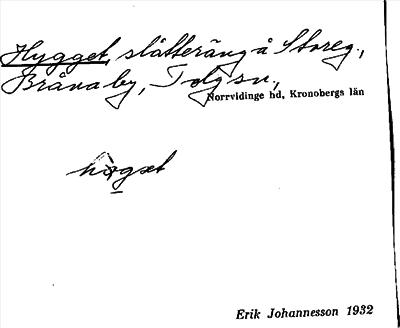 Hygget, slåtteräng å Storeg.,
Brånaby, Tolg sn.,
Norrvidinge hd, Kronobergs län
Erik Johannesson 1932